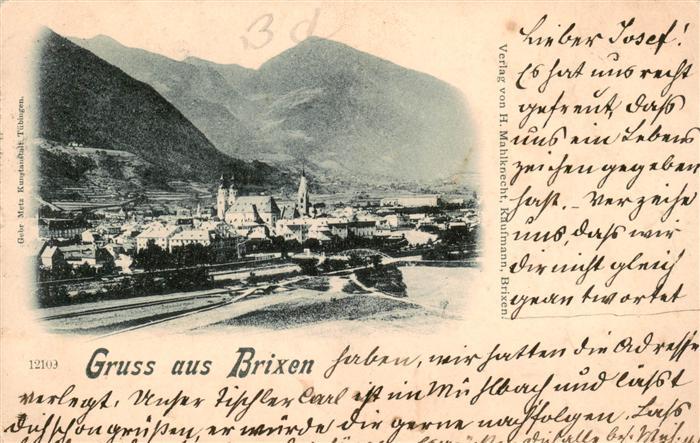 3d
Gebr Metz Kunstanstalt, Tübingen.
Verlag von H. Mahlknecht, Kaufmann, Brixen.
Lieber Josef!
Es hat uns recht
gefreut, daß
uns ein Lebens
zeichen gegeben
hast. – Verzeihe
uns, daß wir
dir nicht gleich
geantwortet
12109
Gruss aus Brixen
haben, wir hatten die Adresse
verlegt. Unser Tischler Carl ist im Mühlbach und läßt
dich schon grüßen, er würde dir gerne nachfolgen. Lass